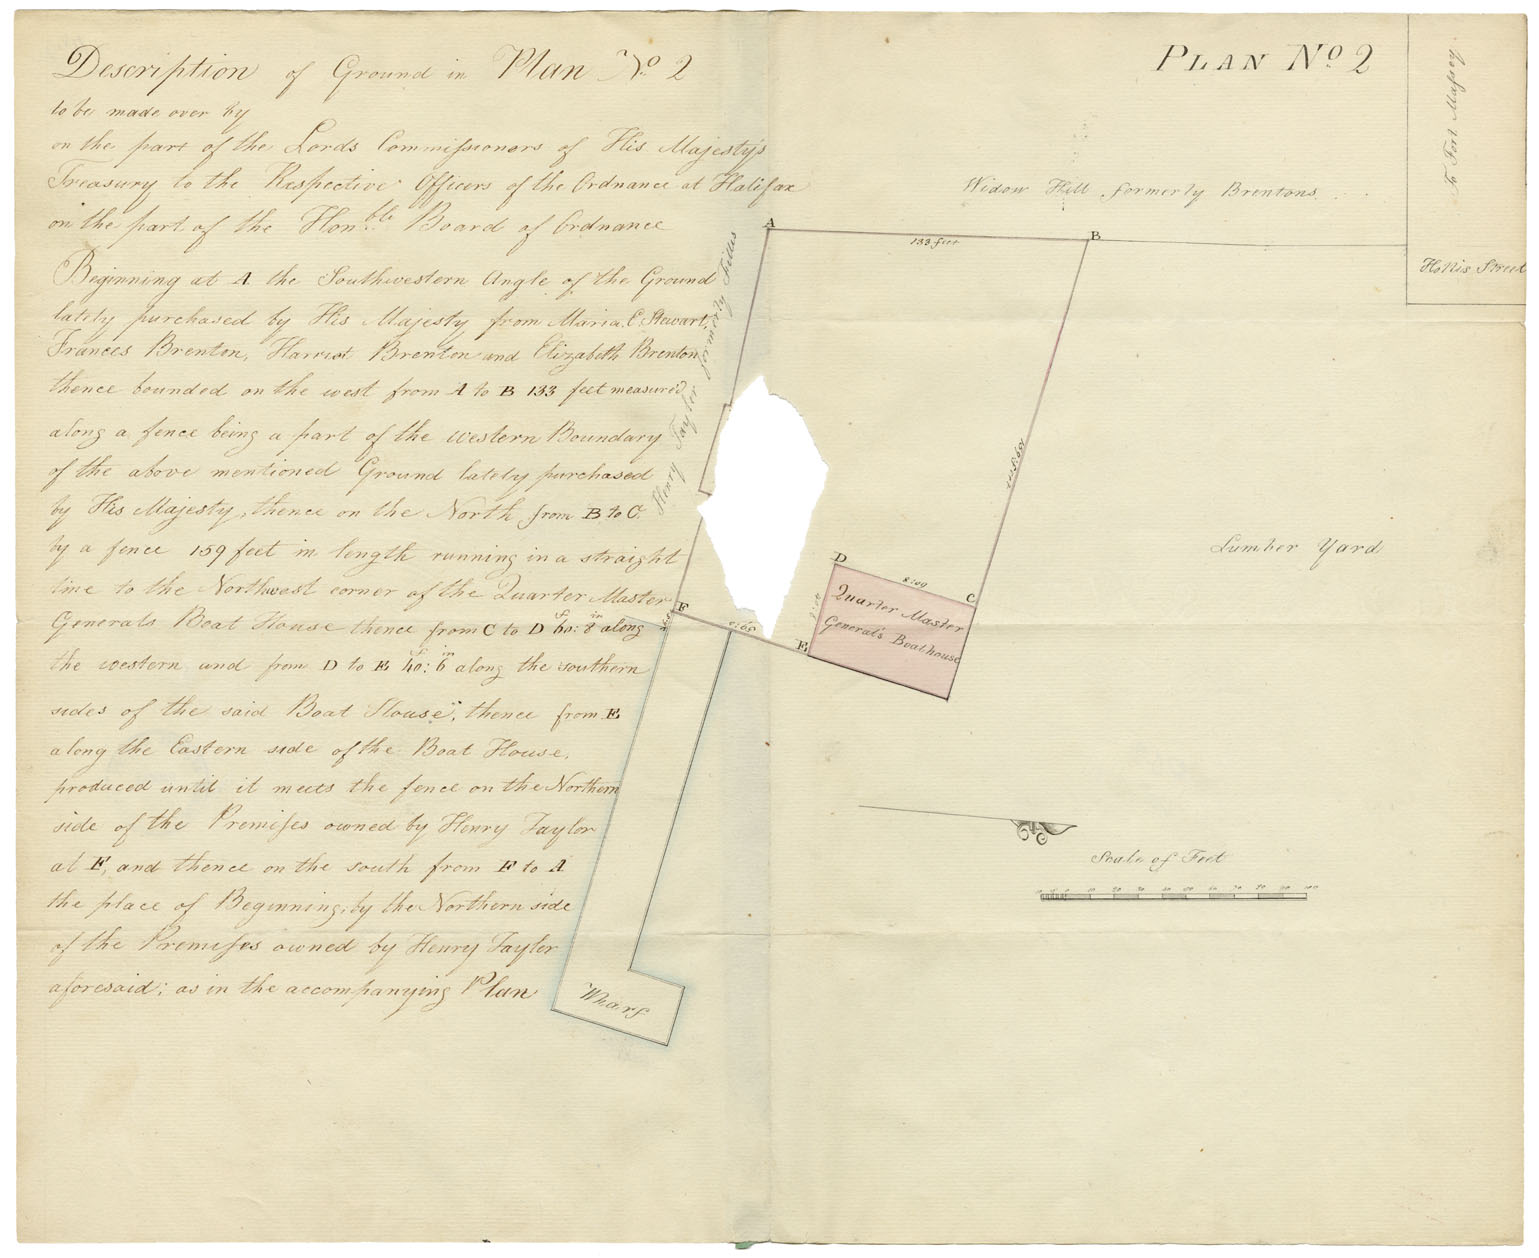 Description of Ground in Plan No. 2
to be made over by
on the part of the Lords Commissioners of His Majesty's
Treasury to the Respective Officers of the Ordnance at Halifax
on the part of the Honble. Board of Ordnance
Beginning at A the Southwestern Angle of the Ground
lately purchased by His Majesty from Maria C. Stewart,
Frances Brenton, Harriot Brenton and Elizabeth Brenton
thence bounded on the west from A to B 133 feet measured
along a fence being a part of the western Boundary
of the above mentioned Ground lately purchased
by His Majesty, thence on the North from B to C.
by a fence 159 feet in length running in a straight
line to the Northwest corner of the Quarter Master
Generals Boat House thence from C to D 60f: 8in along
the western and from D to E 40f: 6in along the southern
sides of the said Boat House, thence from E
along the Eastern side of the Boat House,
produced until it meets the fence on the Northern
side of the Premises owned by Henry Taylor
at F, and thence on the south from F to A
the place of Beginning, by the Northern side
of the Premises owned by Henry Taylor
aforesaid; as in the accompanying Plan
PLAN No. 2
To Fort Massey
Widow Hill formerly Brentons
Hollis Street
A
133 feet
B
Henry Taylor formerly Fillis
Lumber Yard
D
C
Quarter Master
General's Boathouse
E
F
Wharf
Scale of Feet
10 5 0 10 20 30 40 50 60 70 80 90 100